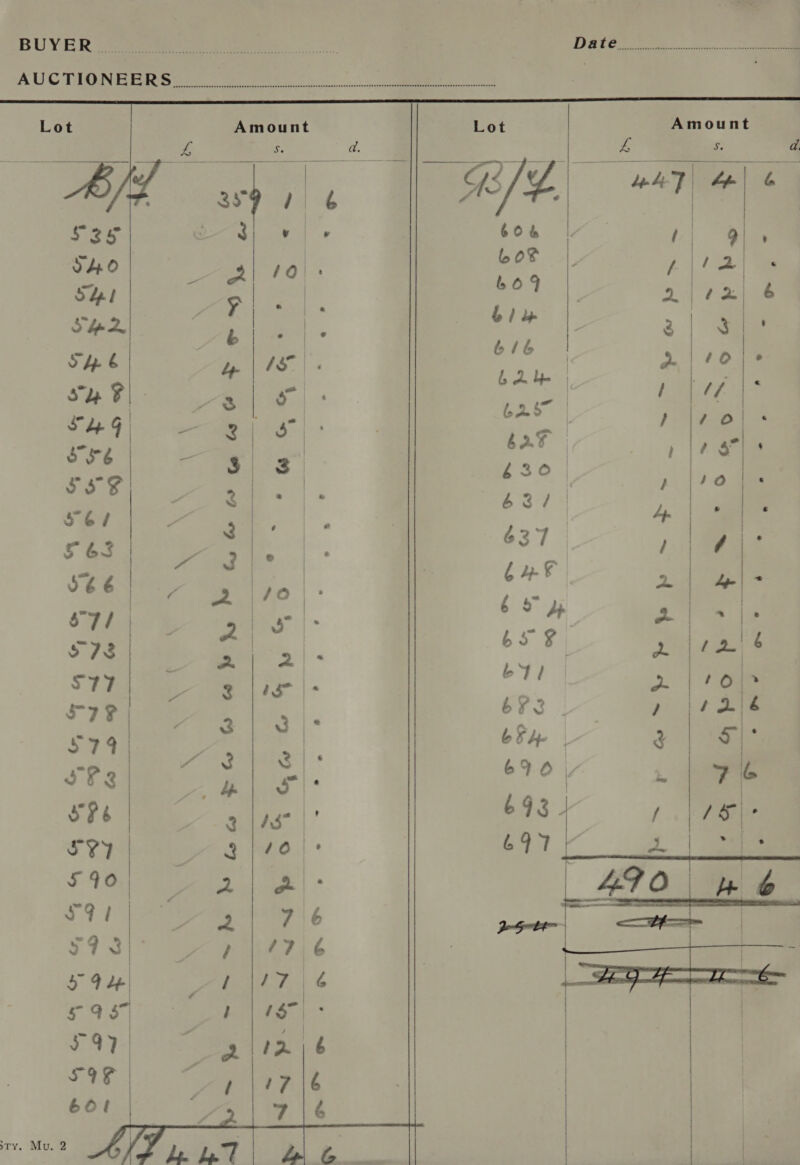 BUYER
Date
AUCTIONEERS
Lot Amount
£ s. d.
B/F 359 1 6
535 3 " "
540 2 10 "
541 7 " "
542 6 " "
546 4 15 "
548 3 5 "
549 3 5 "
556 3 3
558 2 " "
561 3 " "
563 3 " "
566 2 10 "
571 2 5 "
573 2 2 "
577 3 15 "
578 3 3 "
579 3 3 "
583 4 5 "
586 3 15 "
587 3 10 "
590 2 2 "
591 2 7 6
593 1 17 6
594 1 17 6
595 1 15 "
597 2 12 6
598 1 17 6
601 2 7 6
C/F 447 4 6
Sty. Mu. 2
Lot Amount
£ s. d.
B/F. 447 4 6
606 1 9 "
608 1 12 "
609 2 12 6
614 3 3 "
616 2 10 "
624 1 11 "
625 1 10 "
628 1 15 "
630 1 10 "
631 4 " "
637 1 1 "
648 2 4 "
654 2 " "
658 2 12 6
671 2 10 "
683 1 12 6
684 3 5 "
690 2 7 6
693 1 15 "
697 2 " "
490 4 6
254 4
494 4 6